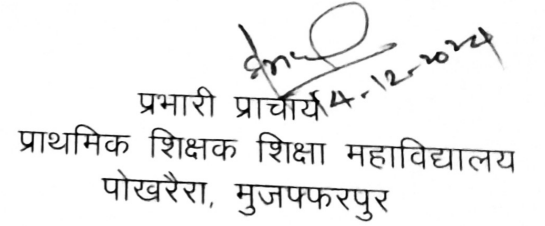 14-12-2024
प्रभारी प्राचार्य
प्राथमिक शिक्षक शिक्षा महाविद्यालय
पोखरैरा, मुजफ्फरपुर